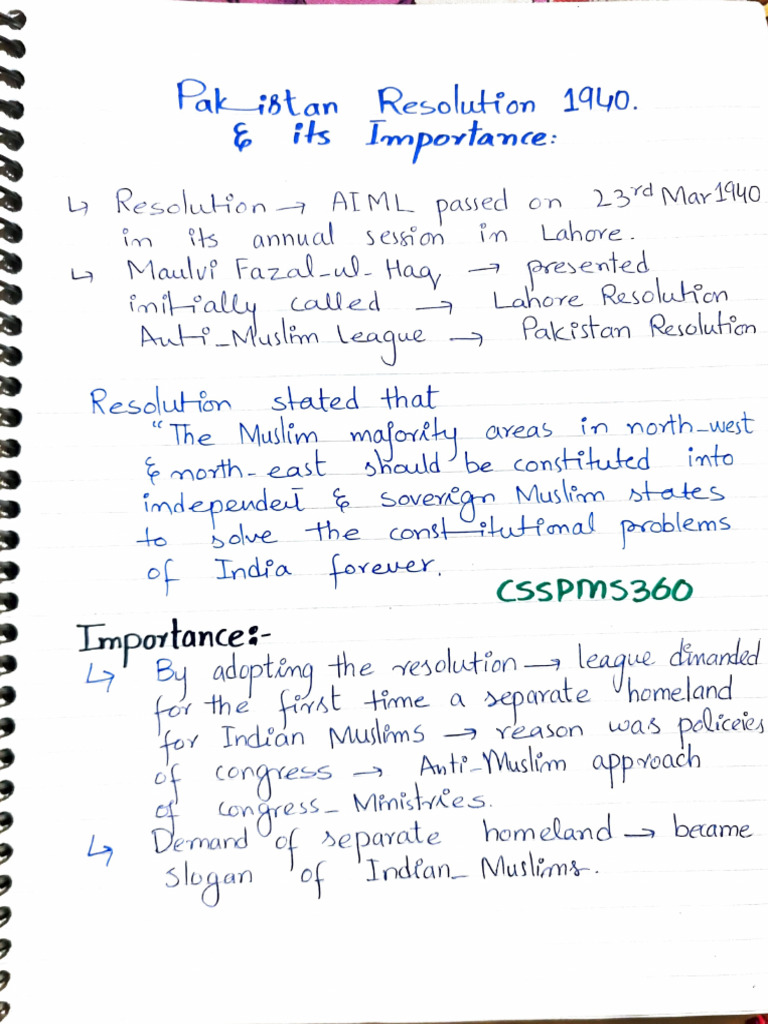 Pakistan Resolution 1940.
& its Importance:
↳ Resolution → AIML passed on 23rd Mar 1940
in its annual session in Lahore.
↳ Maulvi Fazal-ul-Haq → presented
initially called → Lahore Resolution
Anti-Muslim league → Pakistan Resolution
Resolution stated that
"The Muslim majority areas in north-west
& north-east should be constituted into
independent & soverign Muslim states
to solve the constitutional problems
of India forever.
CSSPMS360
Importance:-
↳ By adopting the resolution → league dimanded
for the first time a separate homeland
for Indian Muslims → reason was policeies
of congress → Anti-Muslim approach
of congress-Ministries.
↳ Demand of separate homeland → became
slogan of Indian-Muslims.